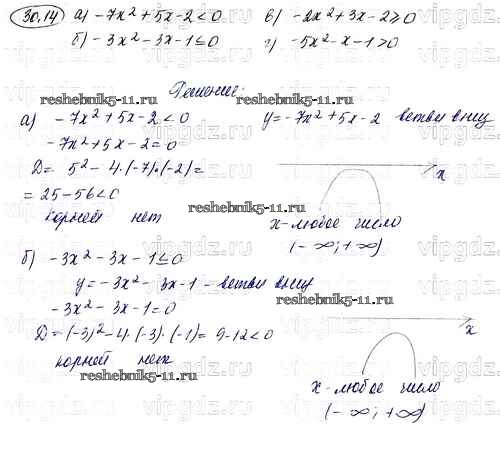 30.14) а) -7x² + 5x - 2 < 0  в) -2x² + 3x - 2 ≥ 0
б) -3x² - 3x - 1 ≤ 0  г) -5x² - x - 1 > 0
Решение:
reshebnik5-11.ru
reshebnik5-11.ru
а) -7x² + 5x - 2 < 0  y = -7x² + 5x - 2 ветви вниз
-7x² + 5x - 2 = 0
D = 5² - 4·(-7)·(-2) =
= 25 - 56 < 0
x
корней нет
reshebnik5-11.ru
x - любое число
(-∞; +∞)
б) -3x² - 3x - 1 ≤ 0
y = -3x² - 3x - 1 - ветви вниз
reshebnik5-11.ru
-3x² - 3x - 1 = 0
D = (-3)² - 4·(-3)·(-1) = 9 - 12 < 0
x
корней нет
reshebnik5-11.ru
x - любое число
(-∞; +∞)
vipgdz.ru